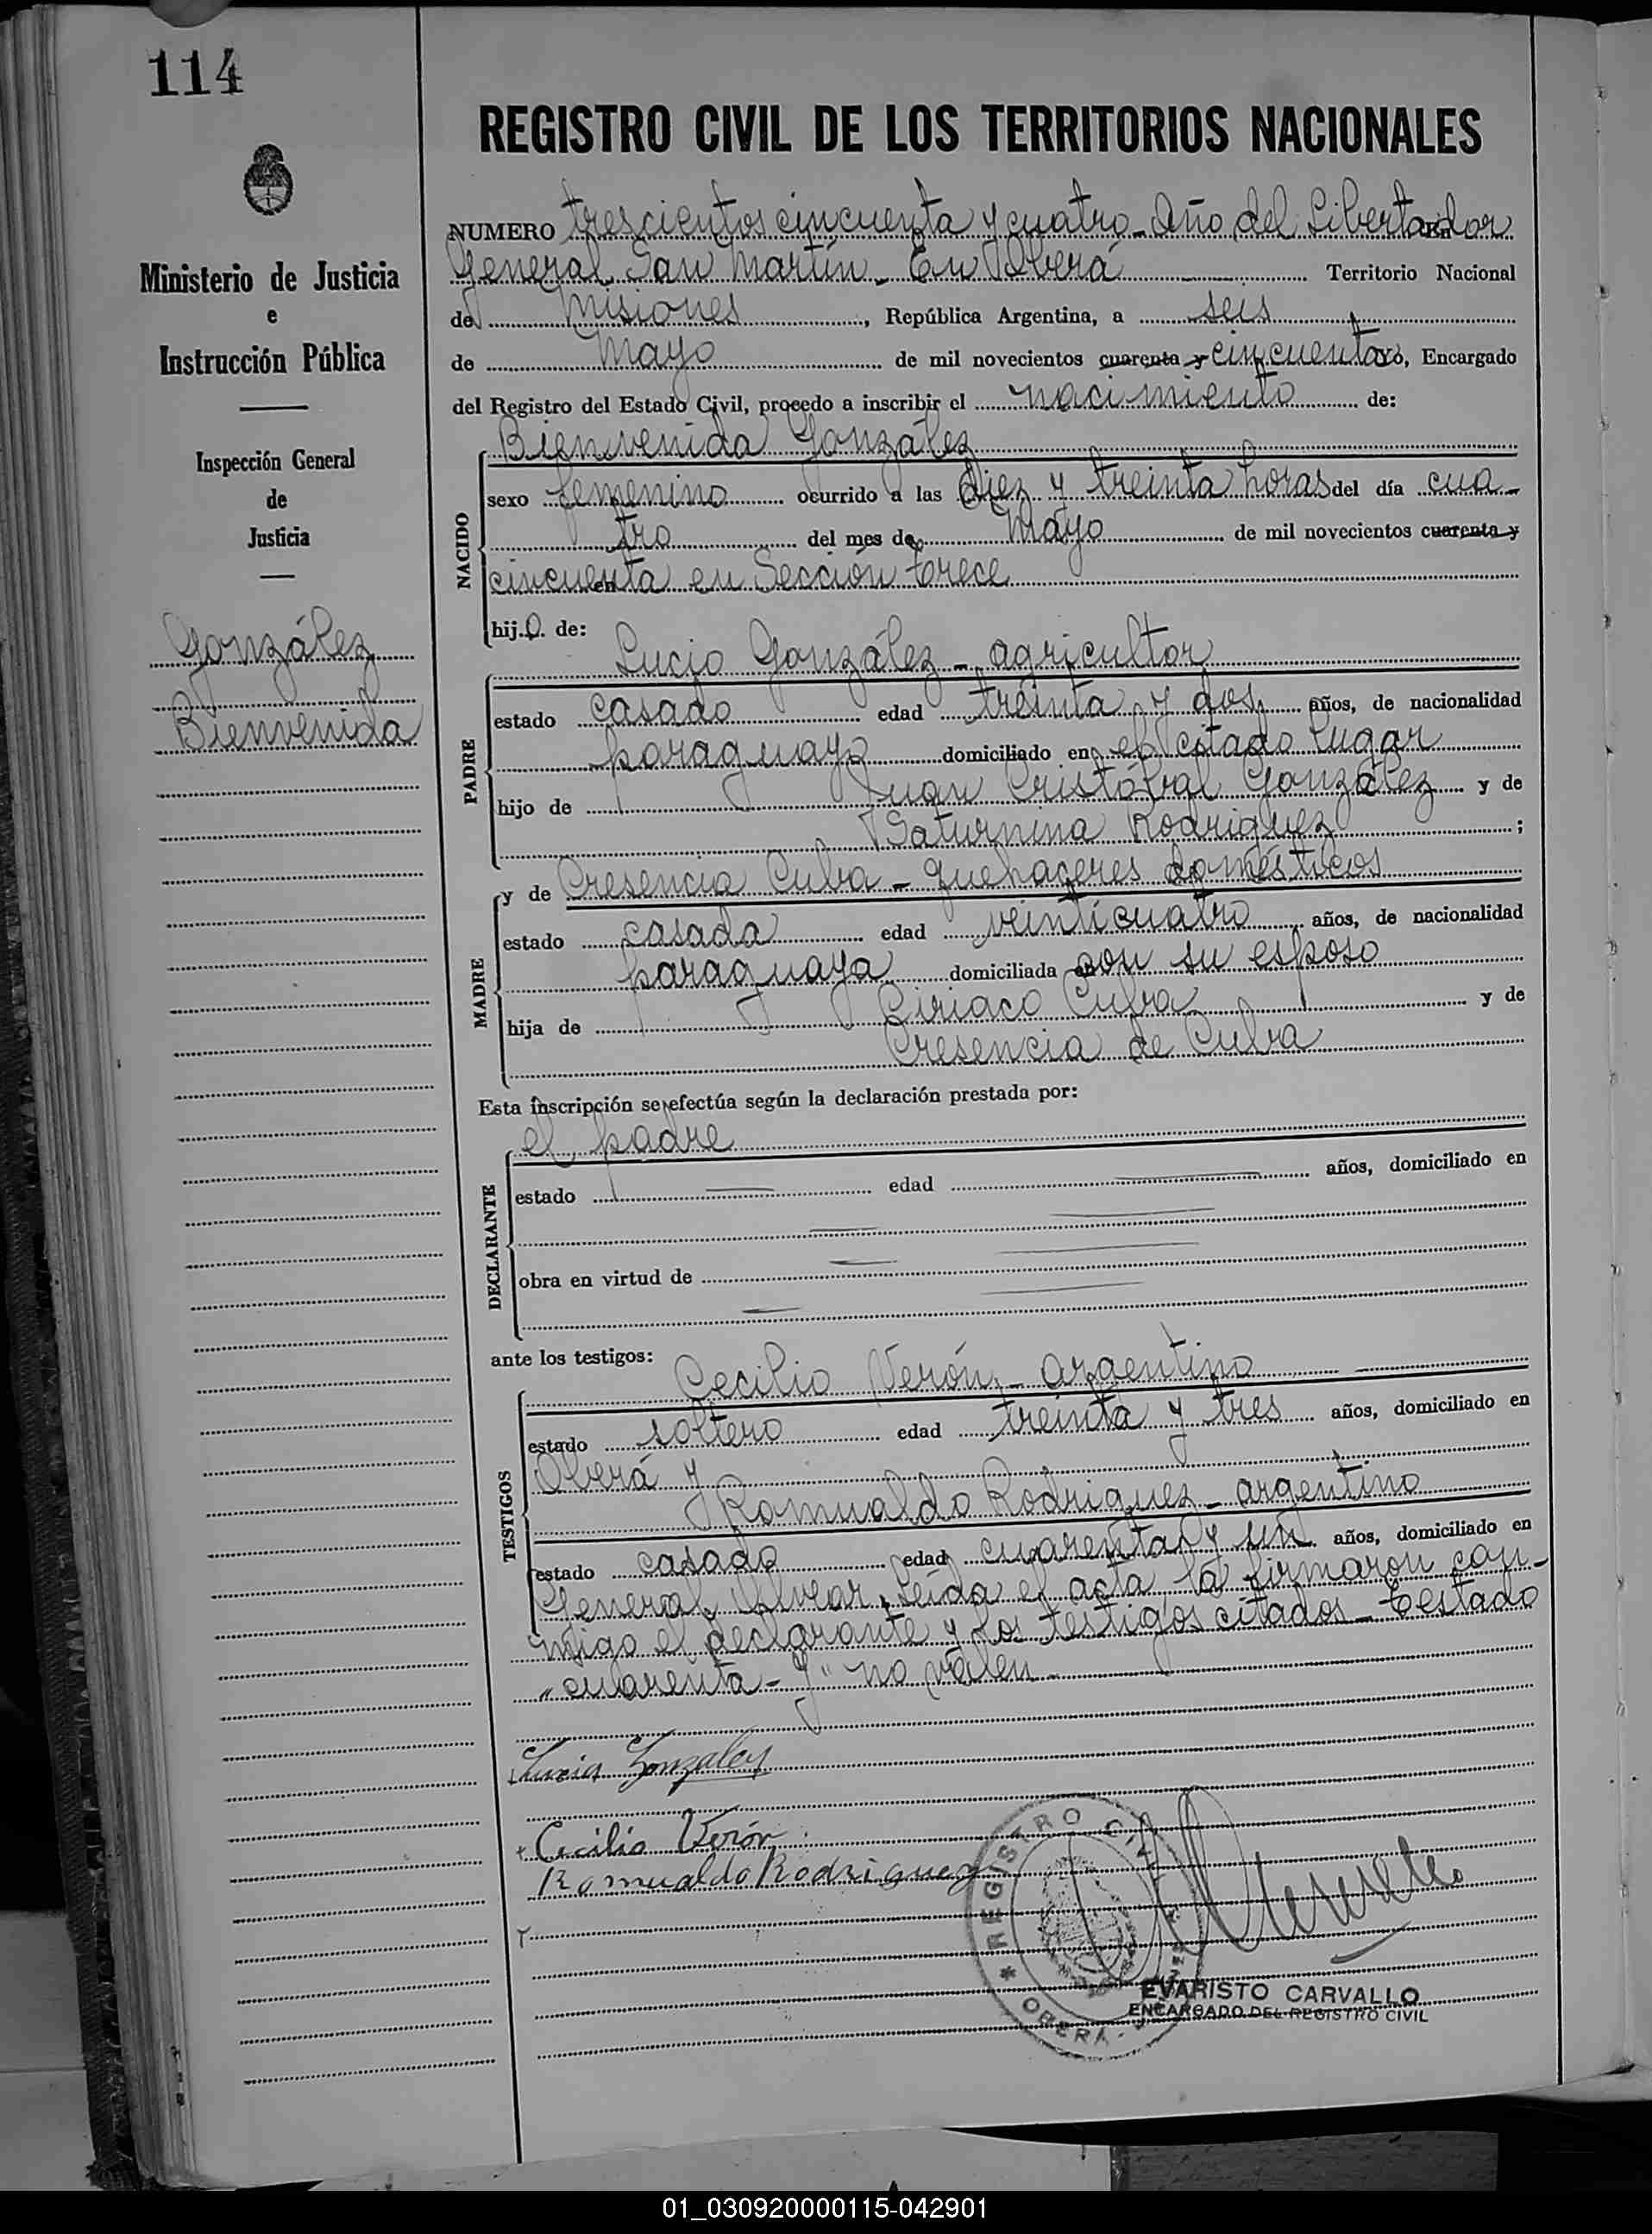 114
REGISTRO CIVIL DE LOS TERRITORIOS NACIONALES
Ministerio de Justicia
e
Instrucción Pública
Inspección General
de
Justicia
González
Bienvenida
NUMERO trescientos cincuenta y cuatro - Año del Libertador
General San Martín - En Oberá Territorio Nacional
de Misiones, República Argentina, a seis
de Mayo de mil novecientos cuarenta y cincuenta yo, Encargado
del Registro del Estado Civil, procedo a inscribir el nacimiento de:
Bienvenida González
NACIDO
sexo femenino ocurrido a las diez y treinta horas del día cua-
tro del mes de Mayo de mil novecientos cuarenta y
cincuenta en Sección trece
hija de:
Lucio González - agricultor
PADRE
estado casado edad treinta y dos años, de nacionalidad
paraguaya domiciliado en el citado lugar
hijo de Juan Cristóbal González y de
Saturnina Rodriguez;
y de Cresencia Cuba - quehaceres domésticos
MADRE
estado casada edad veinticuatro años, de nacionalidad
paraguaya domiciliada con su esposo
hija de Ciriaco Cuba y de
Cresencia de Cuba
Esta inscripción se efectúa según la declaración prestada por:
el padre
DECLARANTE
estado edad años, domiciliado en
obra en virtud de
ante los testigos:
Cecilio Verón - argentino
TESTIGOS
estado soltero edad treinta y tres años, domiciliado en
Oberá y
Romualdo Rodriguez - argentino
estado casado edad cuarenta y un años, domiciliado en
General Alvear. Leída el acta, la firmaron con-
migo el declarante y los testigos citados - Testado
"cuarenta - y" no valen -
Lucio Gonzalez
Cecilio Verón
Romualdo Rodriguez
REGISTRO CIVIL
OBERÁ
EVARISTO CARVALLO
ENCARGADO DEL REGISTRO CIVIL
01_030920000115-042901